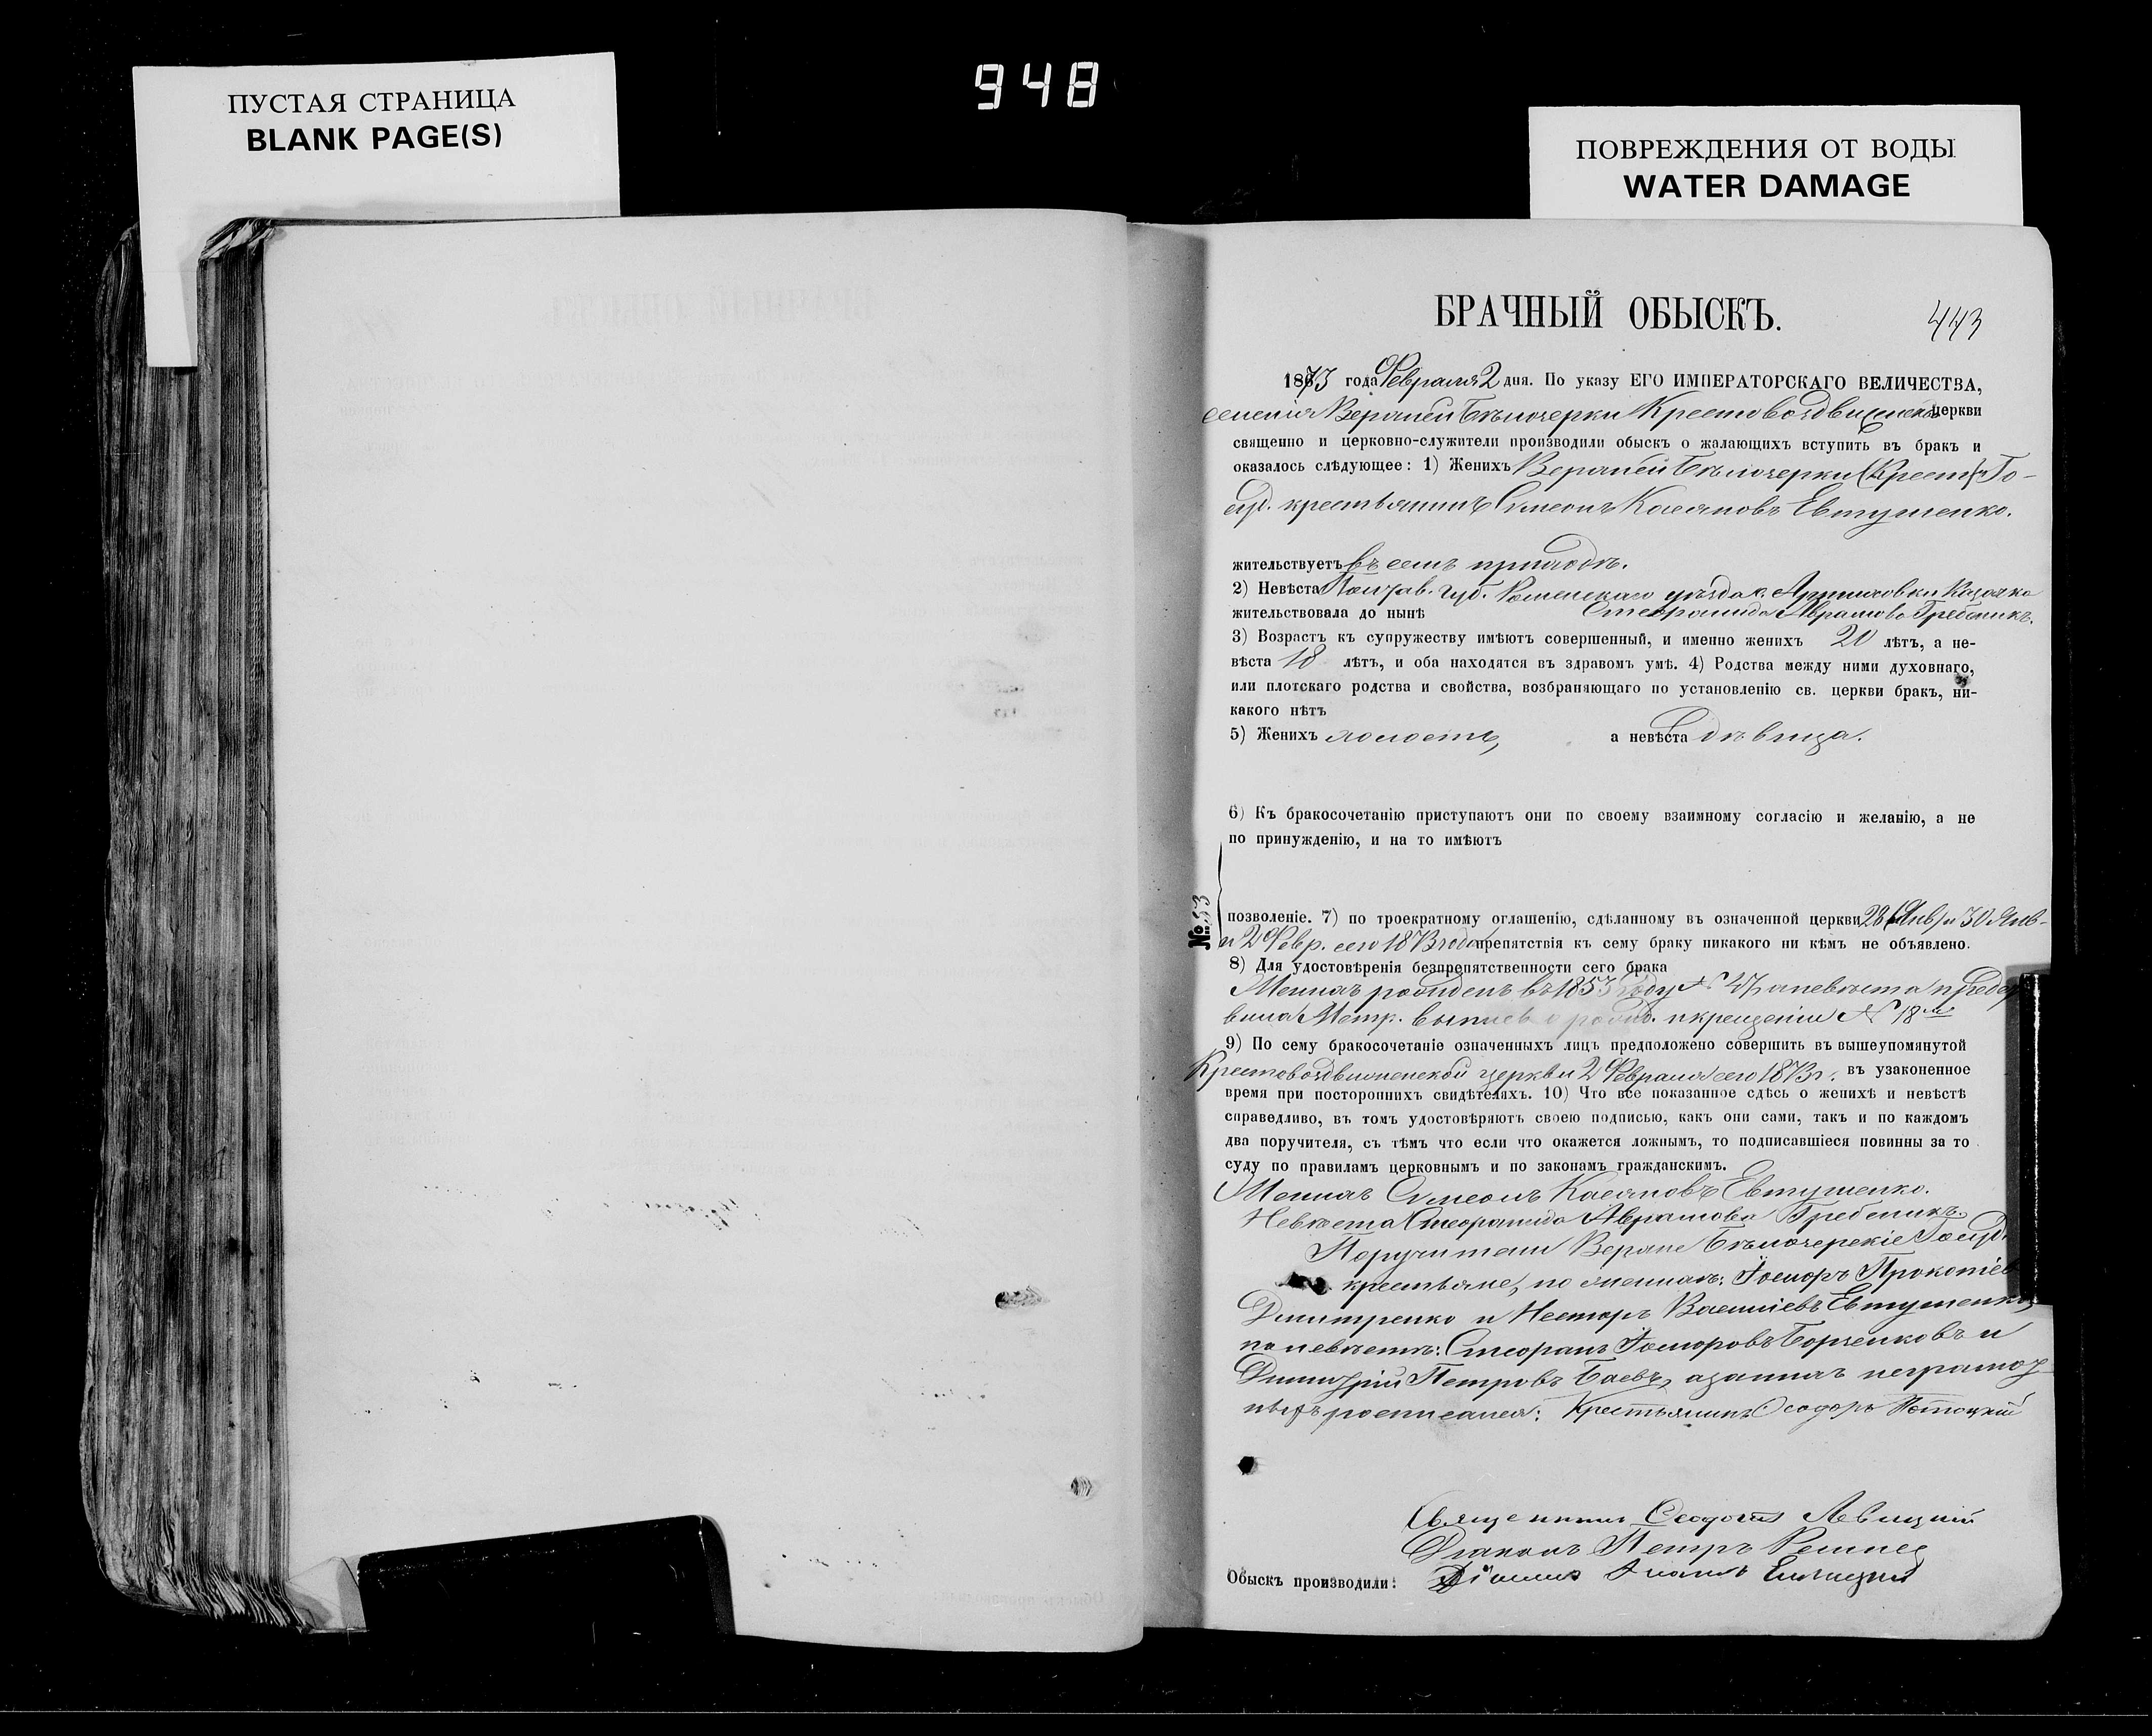 948
ПУСТАЯ СТРАНИЦА
BLANK PAGE(S)
ПОВРЕЖДЕНИЯ ОТ ВОДЫ
WATER DAMAGE
БРАЧНЫЙ ОБЫСКЪ.
443
1873 года Февраля 2 дня. По указу ЕГО ИМПЕРАТОРСКАГО ВЕЛИЧЕСТВА,
селенія Верхней Бѣлозерки Крестовоздвиженской церкви
священно и церковно-служители производили обыскъ о жалающихъ вступить въ бракъ и
оказалось слѣдующее: 1) Женихъ Верхней Бѣлозерки (Крест.) Го-
суд. крестьянинъ Симеонъ Касяновъ Евтушенко.
жительствуетъ въ семъ приходѣ.
2) Невѣста Полтав. губ. Роменскаго уѣзда с. Артюховки Казачка
жительствовала до нынѣ Стефанида Аврамова Гребеникъ.
3) Возрастъ къ супружеству имѣютъ совершенный, и именно женихъ 20 лѣтъ, а не-
вѣста 18 лѣтъ, и оба находятся въ здравомъ умѣ. 4) Родства между ними духовнаго,
или плотскаго родства и свойства, возбраняющаго по установленію св. церкви бракъ, ни-
какого нѣтъ
5) Женихъ холостъ, а невѣста дѣвица.
6) Къ бракосочетанію приступаютъ они по своему взаимному согласію и желанію, а не
по принужденію, и на то имѣютъ
№ 53
позволеніе. 7) по троекратному оглашенію, сдѣланному въ означенной церкви 28 (Янв.) и 30 Янв-
и 2 Февр. сего 1873 года препятствія къ сему браку никакого ни кѣмъ не объявлено.
8) Для удостовѣренія безпрепятственности сего брака
Женихъ рожденъ въ 1853 году № 47, а невѣста предъя
вила Метр. выпись о рожд. и крещеніи № 18
9) По сему бракосочетаніе означенныхъ лицъ предположено совершить въ вышеупомянутой
Крестовоздвиженской церкви 2 Февраля сего 1873 г. въ узаконенное
время при постороннихъ свидѣтеляхъ. 10) Что все показанное сдѣсь о женихѣ и невѣстѣ
справедливо, въ томъ удостовѣряютъ своею подписью, какъ они сами, такъ и по каждомъ
два поручителя, съ тѣмъ что если что окажется ложнымъ, то подписавшіеся повинны за то
суду по правиламъ церковнымъ и по законамъ гражданскимъ.
Женихъ Симеонъ Касяновъ Евтушенко.
Невѣста Стефанида Аврамова Гребеникъ.
Поручители Верхне Бѣлозерскіе Госуд.
крестьяне, по женихѣ: Ѳеодоръ Прокопіев
Дмитренко и Несторъ Васильевъ Евтушенко,
по невѣстѣ: Стефанъ Борченковъ и
Димитрій Петровъ Баевъ, а за нихъ неграмот-
ныхъ росписался: Крестьянинъ Ѳеодоръ Потоцкій
Священникъ Левицкій
Діаконъ Петръ
Обыскъ производили: